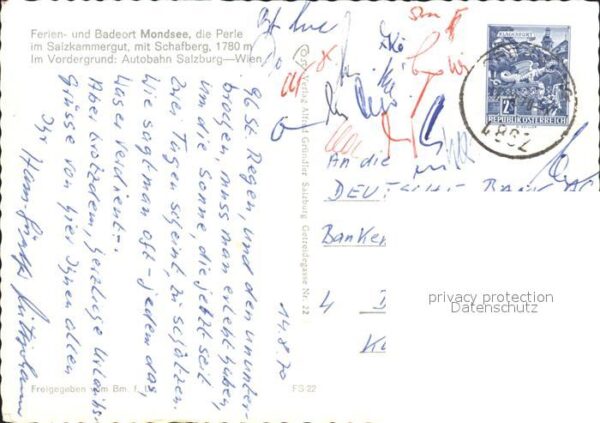 Ferien- und Badeort Mondsee, die Perle
im Salzkammergut, mit Schafberg, 1780 m
Im Vordergrund: Autobahn Salzburg—Wien
KLAGENFURT
2
REPUBLIK ÖSTERREICH
4882
Verlag Alfred Gründler Salzburg Getreidegasse Nr. 22
14.8.70
96 St. Regen, und den ununter-
brochen, muss man erlebt haben,
um die Sonne, die jetzt seit
zwei Tagen scheint, zu schätzen.
Wie sagt man oft - jedem das,
was er verdient -.
Aber trotzdem, herzliche Urlaubs-
Grüsse von hier Ihnen allen
Ihr
An die
DEUTSCHE BANK AG
Banken
4 D
Freigegeben vom Bm. f.
FS 22
privacy protection
Datenschutz